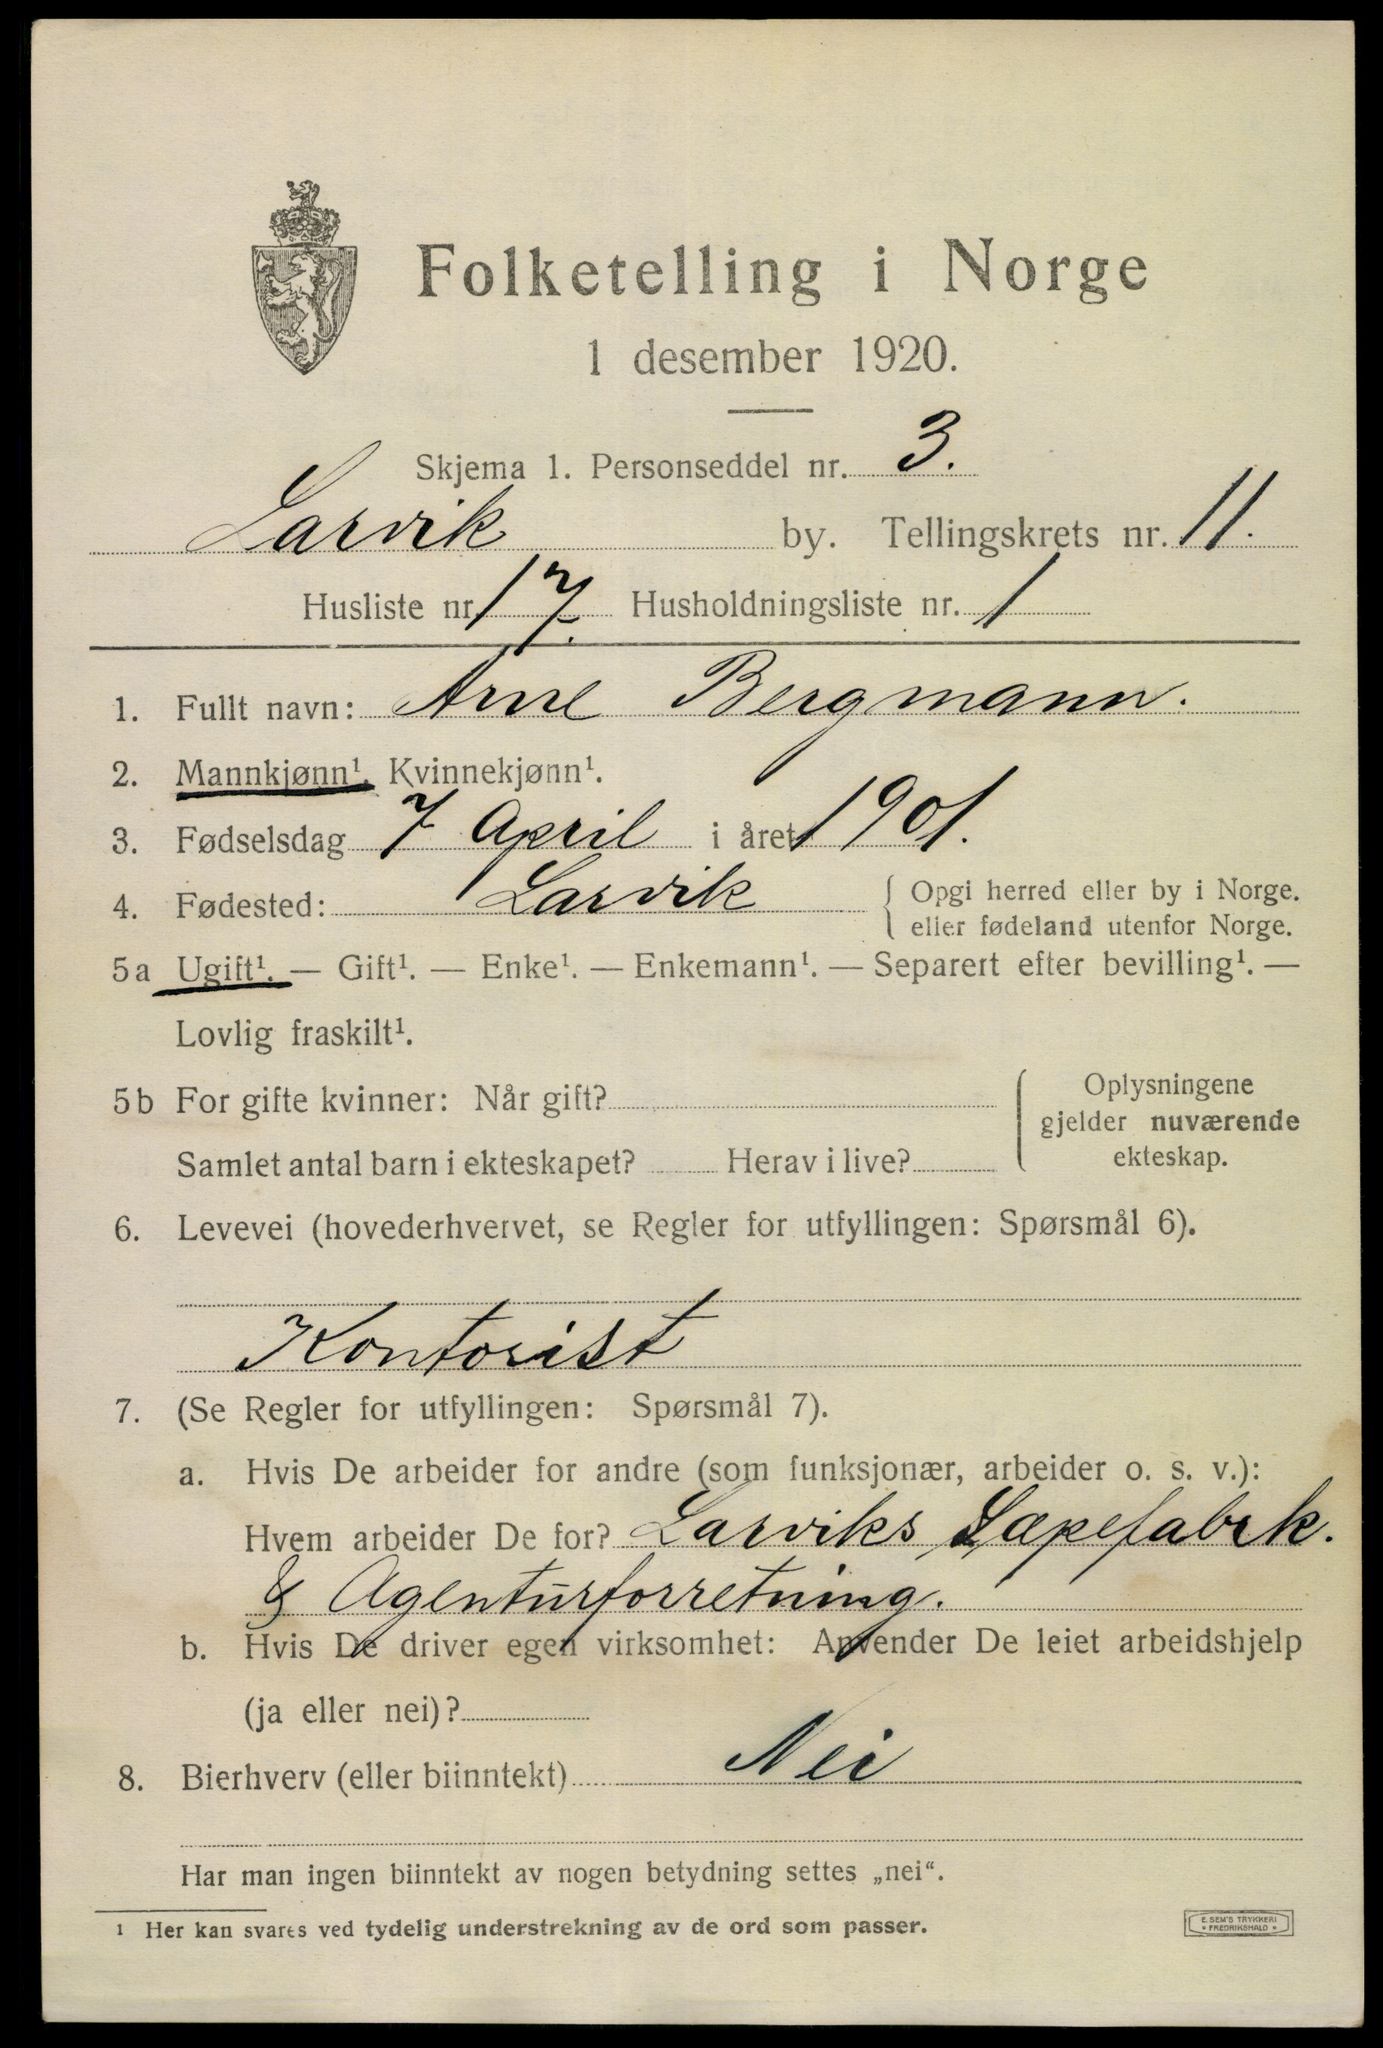 Folketelling i Norge
1 desember 1920.
Skjema 1. Personseddel nr. 3.
Larvik by. Tellingskrets nr. 11.
Husliste nr. 17. Husholdningsliste nr. 1
1. Fullt navn: Arne Bergmann.
2. Mannkjønn¹. Kvinnekjønn¹.
3. Fødselsdag 7 April i året 1901.
4. Fødested: Larvik { Opgi herred eller by i Norge.
eller fødeland utenfor Norge.
5a Ugift¹. — Gift¹. — Enke¹. — Enkemann¹. — Separert efter bevilling¹. —
Lovlig fraskilt¹.
5b For gifte kvinner: Når gift?
Samlet antal barn i ekteskapet? Herav i live?
Oplysningene
gjelder nuværende
ekteskap.
6. Levevei (hovederhvervet, se Regler for utfyllingen: Spørsmål 6).
Kontorist
7. (Se Regler for utfyllingen: Spørsmål 7).
a. Hvis De arbeider for andre (som funksjonær, arbeider o. s. v.):
Hvem arbeider De for? Larviks Sæpefabrk.
& Agenturforretning.
b. Hvis De driver egen virksomhet: Anvender De leiet arbeidshjelp
(ja eller nei)?
8. Bierhverv (eller biinntekt) Nei
Har man ingen biinntekt av nogen betydning settes „nei“.
¹ Her kan svares ved tydelig understrekning av de ord som passer.
E. SEM'S TRYKKERI
* FREDRIKSHALD *